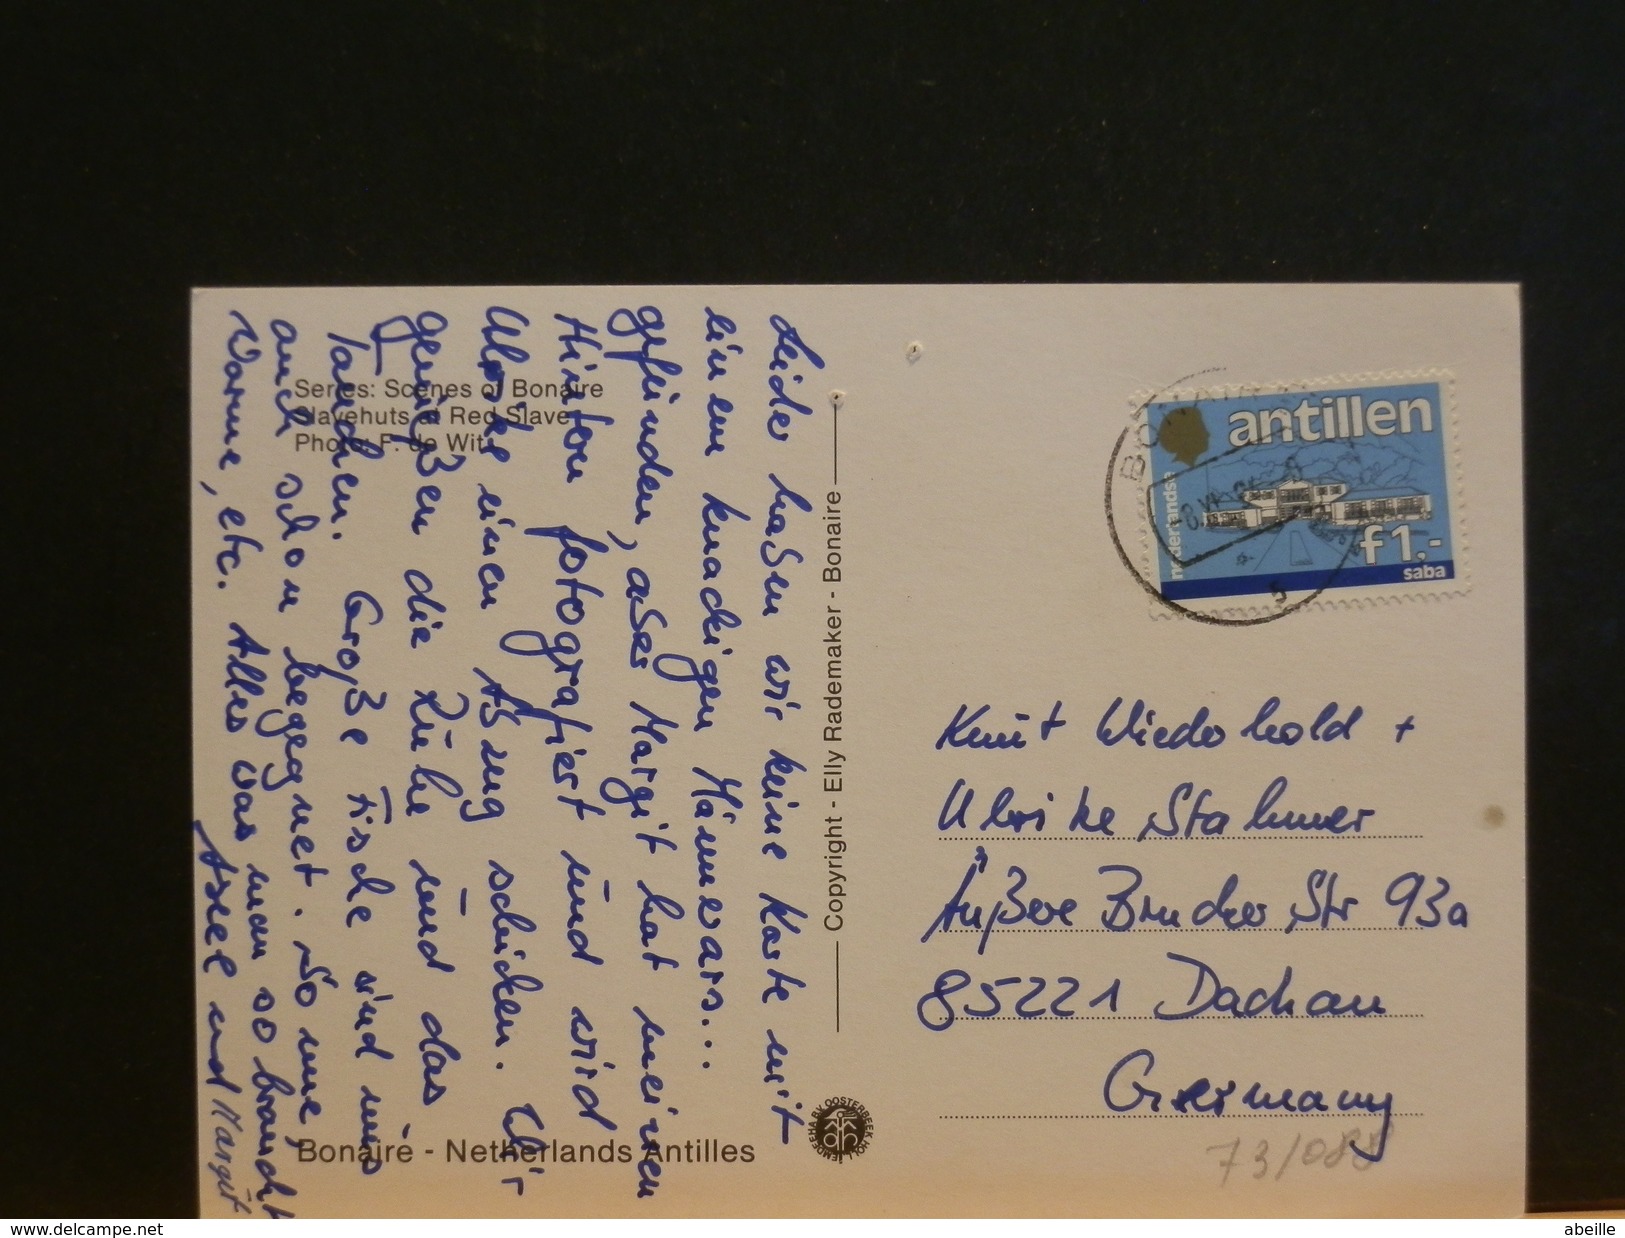 Leider haben wir keine Karte mit
einem knackigen Männerars...
gefunden, aber Margit hat meinen
Hintern fotografiert und wird
Ulrike einen Abzug schicken. Wir
genießen die Ruhe und das
Tauchen. Große Fische sind uns
auch schon begegnet. Sonne,
Wärme, etc. Alles was man so braucht
Axel und Margit
Series: Scenes of Bonaire
Slavehuts at Red Slave
Photo: F. de Wit
Bonaire - Netherlands Antilles
Copyright - Elly Rademaker - Bonaire
nederlandse
antillen
f 1,-
saba
BONAIRE
5
Knut Wiederhold +
Ulrike Stahmer
Äußere Brucker Str 93a
85221 Dachau
Germany
73/088
www.delcampe.net
abeille